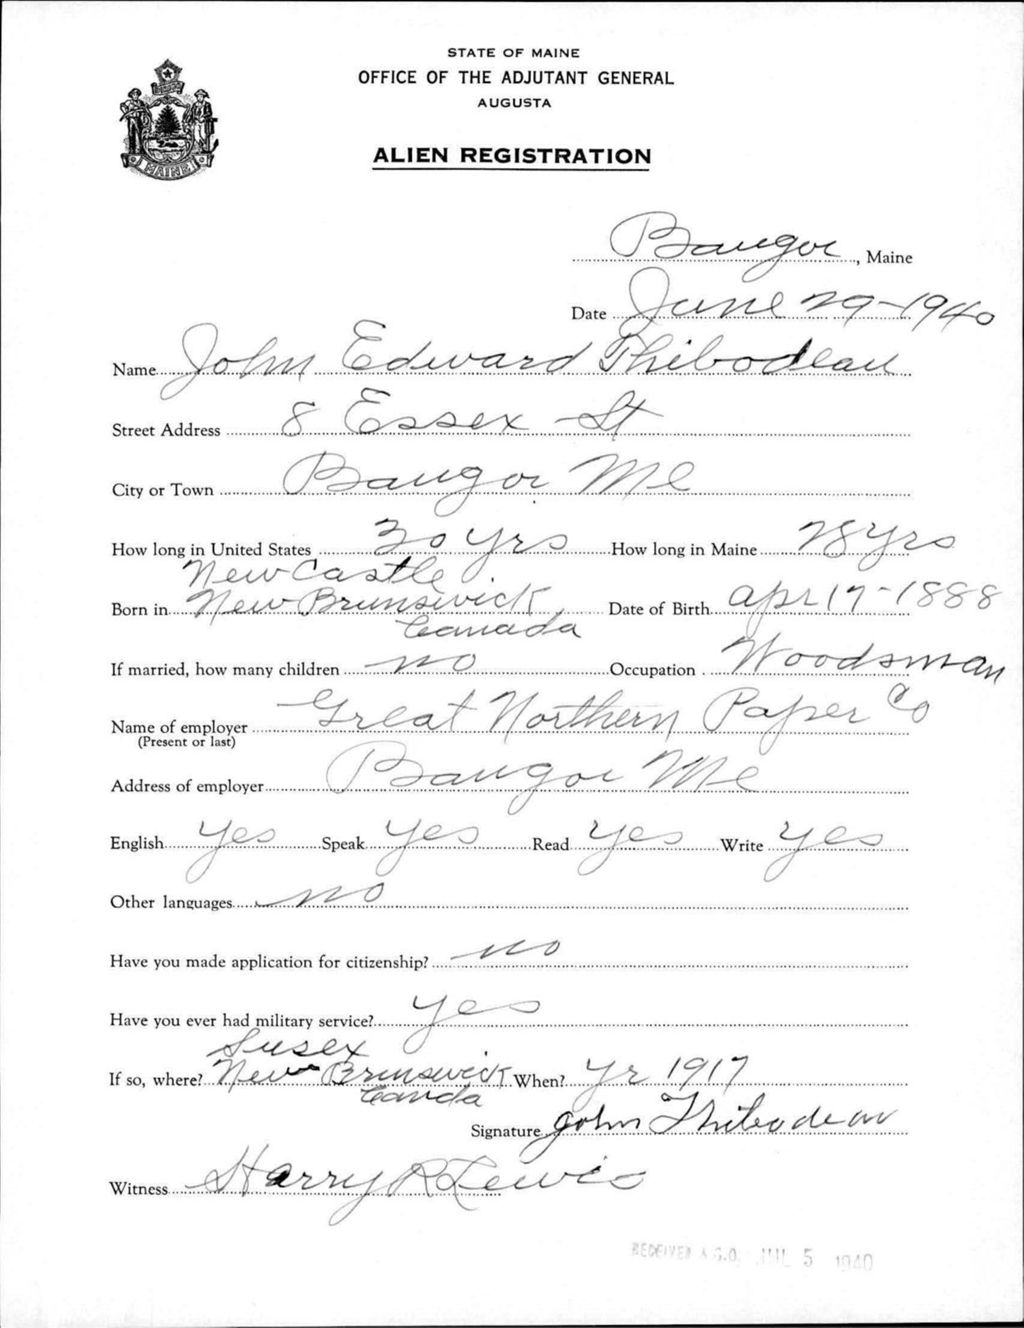 STATE OF MAINE
OFFICE OF THE ADJUTANT GENERAL
AUGUSTA
ALIEN REGISTRATION
MAINE
Bangor, Maine
Date June 29-1940
Name John Edward Thibodeau
Street Address 8 Essex St
City or Town Bangor Me
How long in United States 30 yrs How long in Maine 28 yrs
New Castle
Born in New Brunswick, Date of Birth apr 17-1888
Canada
If married, how many children no Occupation Woodsman
Name of employer Great Northern Paper Co
(Present or last)
Address of employer Bangor Me
English yes Speak yes Read yes Write yes
Other languages no
Have you made application for citizenship? no
Have you ever had military service? yes
Susex
If so, where? New Brunswick When? yr 1917
Canda
Signature John Thibodeau
Witness Harry R Lewis
RECEIVED A.G.O. JUL 5 1940